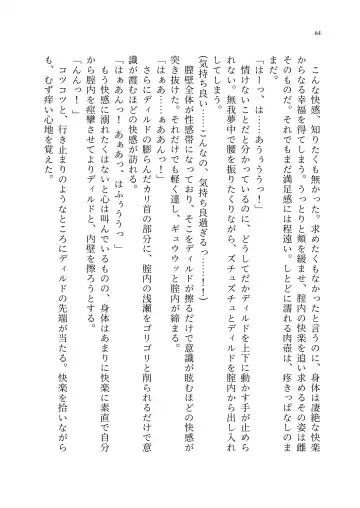 64
こんな快感、知りたくも無かった。求めたくもなかったと言うのに、身体は凄絶な快楽
からなる幸福を得てしまう。うっとりと頬を緩ませ、腟内の快楽を追い求めるその姿は雌
そのものだ。それでもまだ満足感には程遠い。しとどに濡れる肉壺は、疼きっぱなしのま
まだ。
「はーっ、は……あぅぅううっ！」
情けないことだと分かっているのに、どうしてだかディルドを上下に動かす手が止めら
れない。無我夢中で腰を振りたくりながら、ズチュズチュとディルドを腟内から出し入れ
してしまう。
（気持ち良い……こんなの、気持ち良過ぎるっ……！！）
腟壁が全体性感帯になっており、そこをディルドが擦るだけで意識が眩むほどの快感が
突き抜けた。それだけでも軽く達し、ギュウウッと腟内が締まる。
「はぁあ……ぁああんっ！」
さらにディルドの膨らんだカリ首の部分に、腟内の浅瀬をゴリゴリと削られるだけで意
識が霞むほどの快感が訪れる。
「はぁあんっ！　あぁあっ、はふぅううっ」
もう快感に溺れたくはないと心は叫んでいるものの、身体はあまりに快楽に素直で自分
から腟内を痙攣させてよりディルドと、内壁を擦ろうとする。
「んんっ！」
コツコツと、行き止まりのようなところにディルドの先端が当たる。快楽を拾いながら
も、むず痒い心地を覚えた。